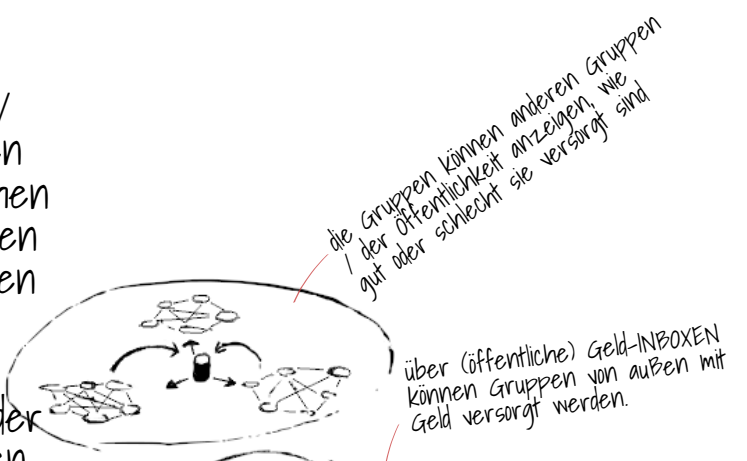 die Gruppen können anderen Gruppen
/ der Öffentlichkeit anzeigen, wie
gut oder schlecht sie versorgt sind
über (öffentliche) Geld-INBOXEN
können Gruppen von außen mit
Geld versorgt werden.